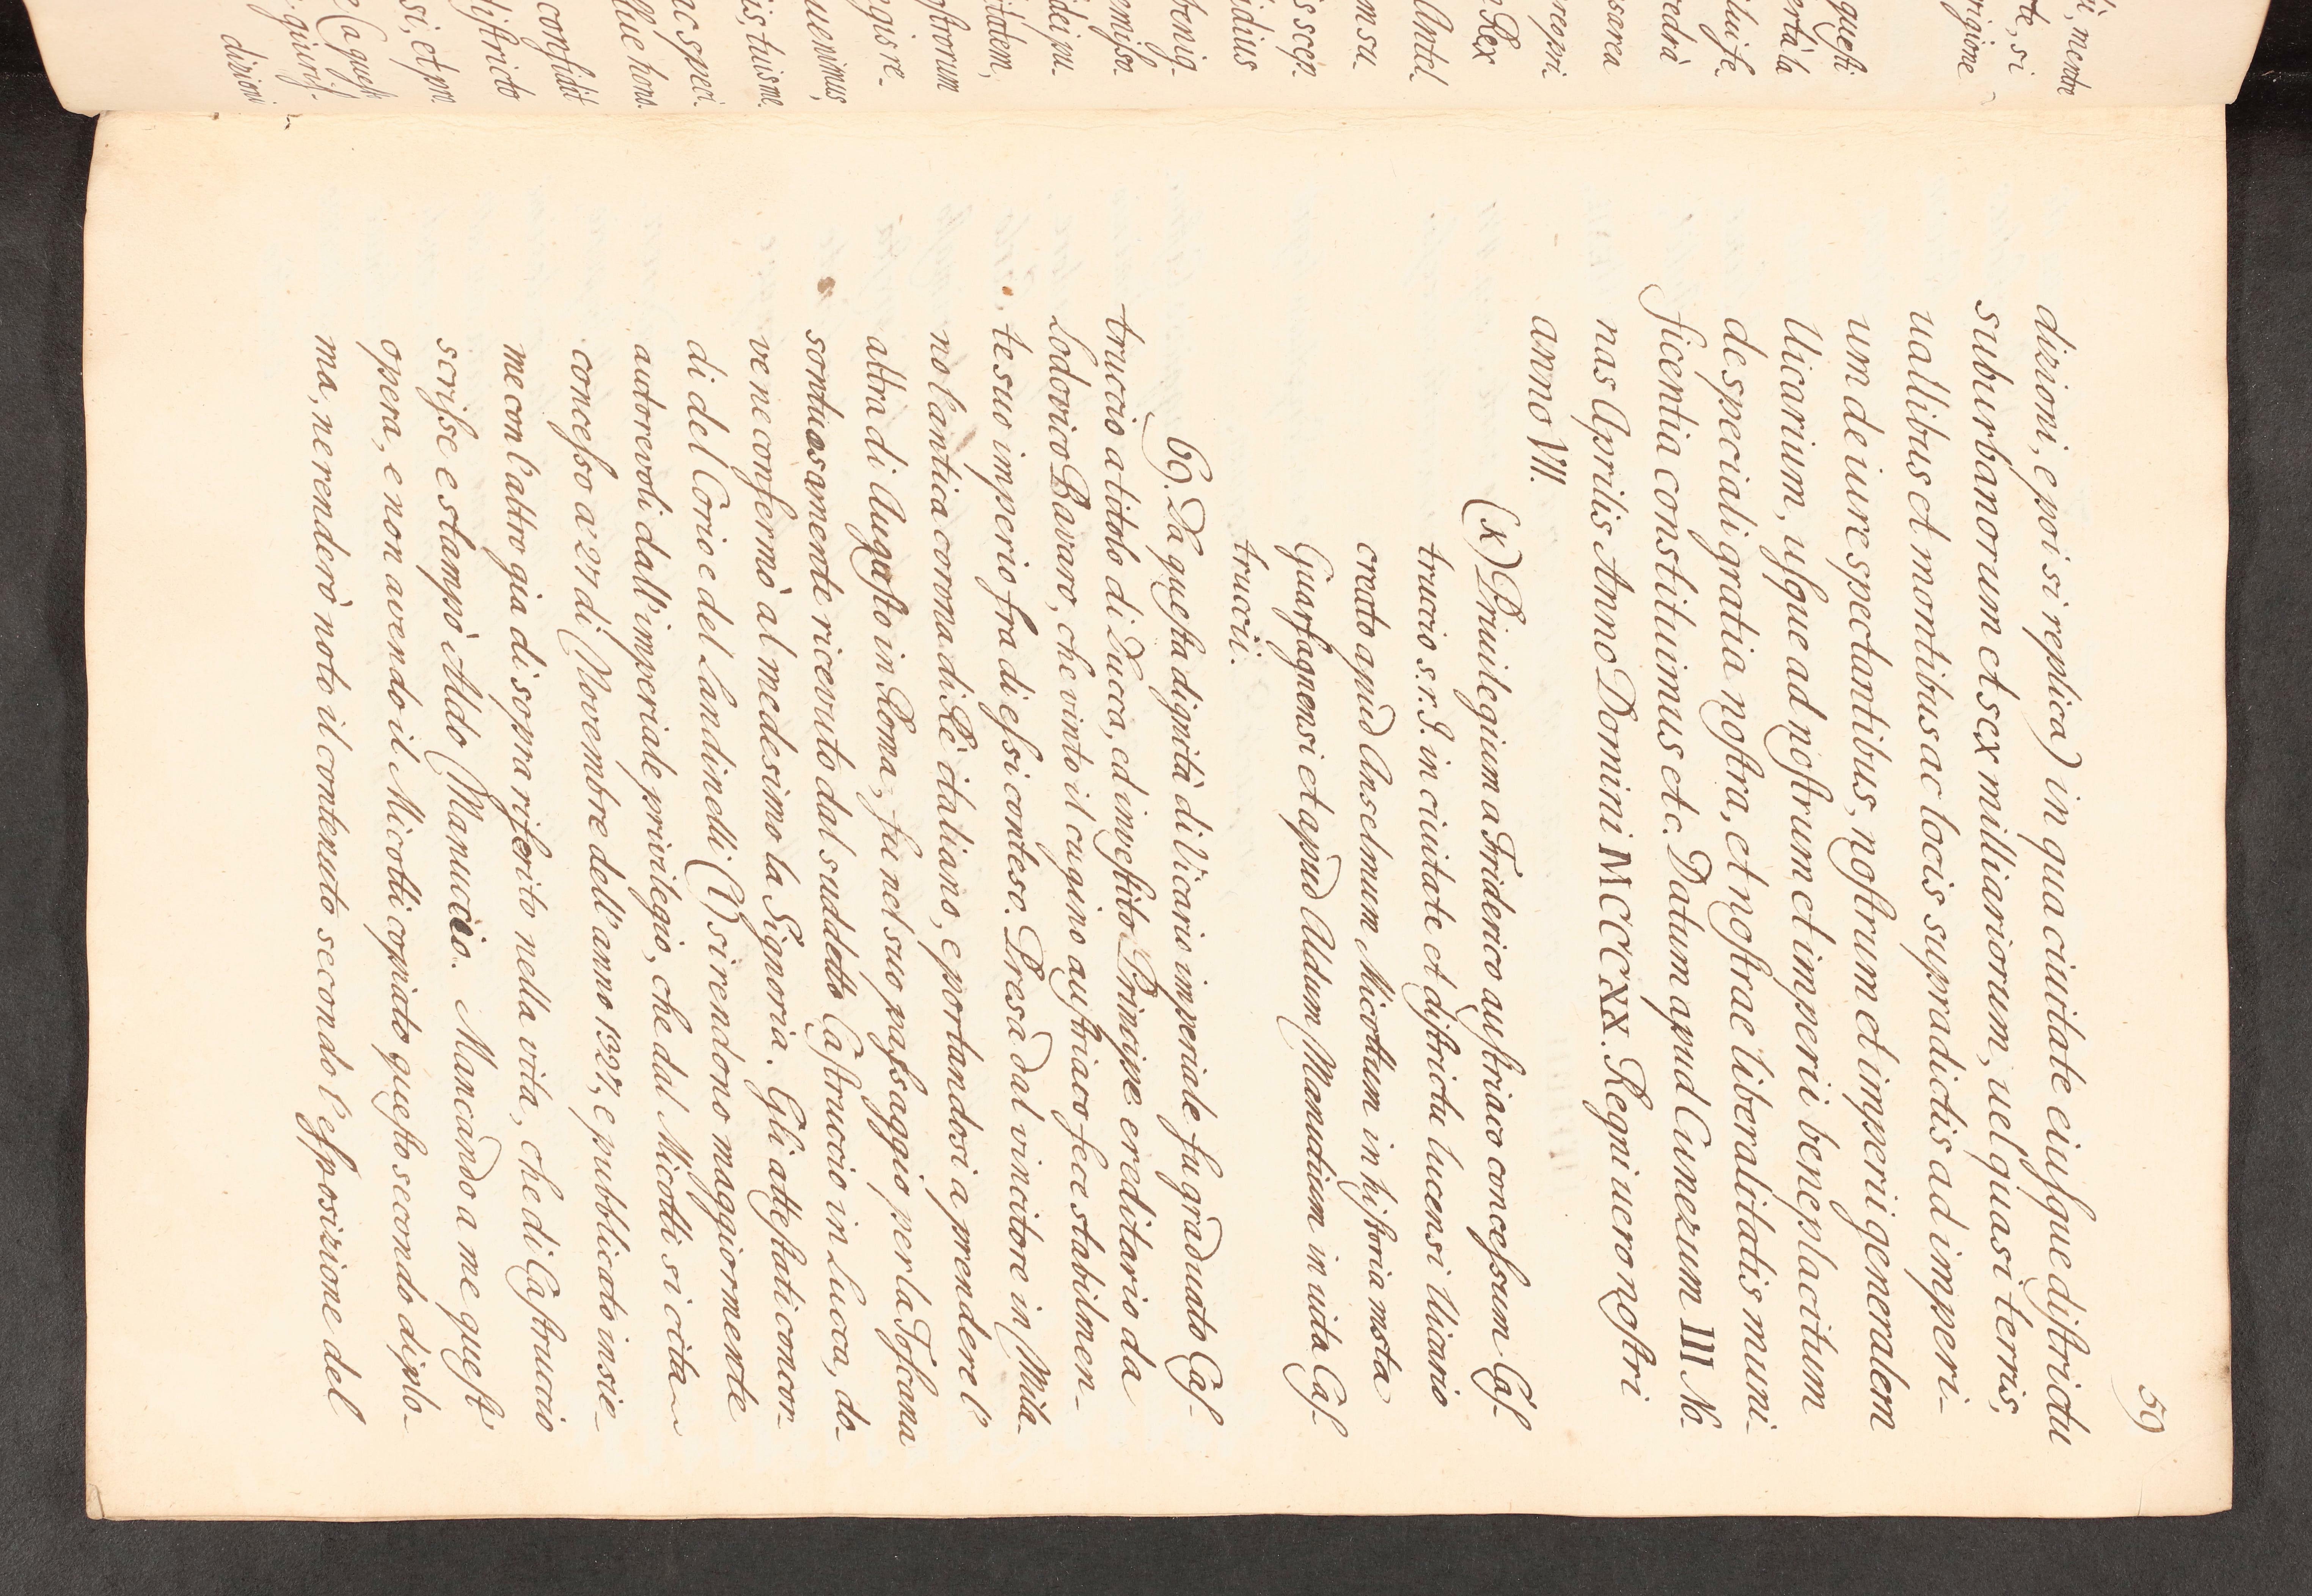 59
dizioni, e poi si replica) in qua ciuitate eiusque districtu
suburbanorum et sex milliariorum, uel quasi terris,
uallibus et montibus ac locis supradictis ad imperi-
um de iure spectantibus, nostrum et imperii generalem
Uicarium, usque ad nostrum et imperii beneplacitum
de speciali gratia nostra, et nostrae liberalitatis muni-
ficentia constituimus etc. Datum apud Cunezum III No-
nas Aprilis Anno Domini MCCCXX. Regni uero nostri
anno VII.
(k) Priuilegium a Friderico austriaco concessum Cas-
truccio s.r.I. in ciuitate et districtu lucensi Uicario
creato apud Anselmum Micottum in historia msta
Guarfagnensi et apud Aldum Manutium in uita Cas-
truccii.
69. Da questa dignità di Vicario imperiale fu graduato Cas-
truccio a titolo di Lucca, ed investito Principe ereditario da
Lodovico Bavaro, che vinto il cugino austriaco fece stabilmen-
te suo imperio fra di essi conteso. Presa dal vincitore in Mila-
no l'antica corona di Rè italiano, e portandosi a prendere l'
altra di Augusto in Roma, fu nel suo passaggio per la Toscana
sontuosamente ricevuto dal suddetto Castruccio in Lucca, do-
ve ne confermò al medesimo la Signoria. Gli attestati concor-
di del Corio e del Landinelli (l) si rendono maggiormente
autorevoli dall'imperiale privilegio, che dal Micotti si cita
concesso a' 27 di Novembre dell'anno 1327, e pubblicato insie-
me con l'altro gia di sopra riferito nella vita, che di Castruccio
scrisse e stampò Aldo Manuccio. Mancando a me quest'
opera, e non avendo il Micotti copiato questo secondo diplo-
ma, ne renderò noto il contenuto secondo l'esposizione del